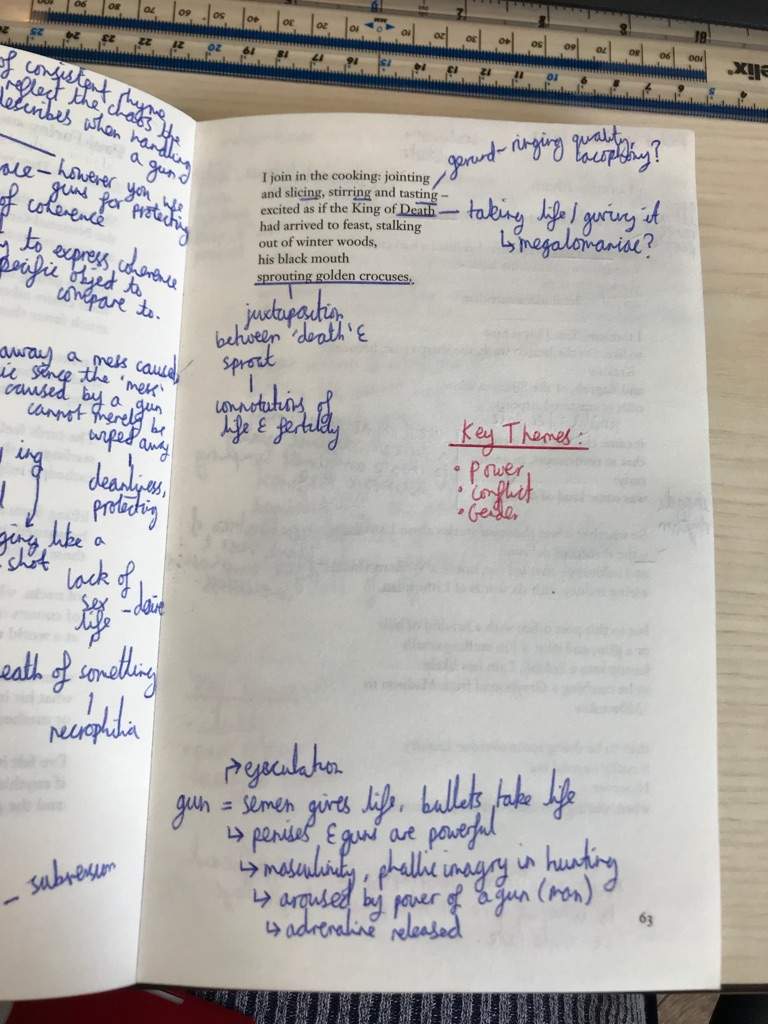 of consistent rhyme
reflect the chaos the
describes when handling
a gun
however you use
guns for protecting
of coherence
to express coherence
specific object to
compare to.
away a mess caused
since the 'mess'
caused by a gun
cannot merely be
wiped away
ing
cleanliness,
protecting
like a
shot
lack of
sex - desire
life
death of something
necrophilia
- subversion
I join in the cooking: jointing
and slicing, stirring and tasting –
excited as if the King of Death
had arrived to feast, stalking
out of winter woods,
his black mouth
sprouting golden crocuses.
gerund - ringing quality,
cacophony?
taking life / giving it
↳ megalomaniac?
juxtaposition
between 'death' &
sprout
connotations of
life & fertility
Key Themes:
• Power
• Conflict
• Gender
↱ ejaculation
gun = semen gives life, bullets take life
↳ penises & guns are powerful
↳ masculinity, phallic imagry in hunting
↳ aroused by power of a gun (man)
↳ adrenaline released
63